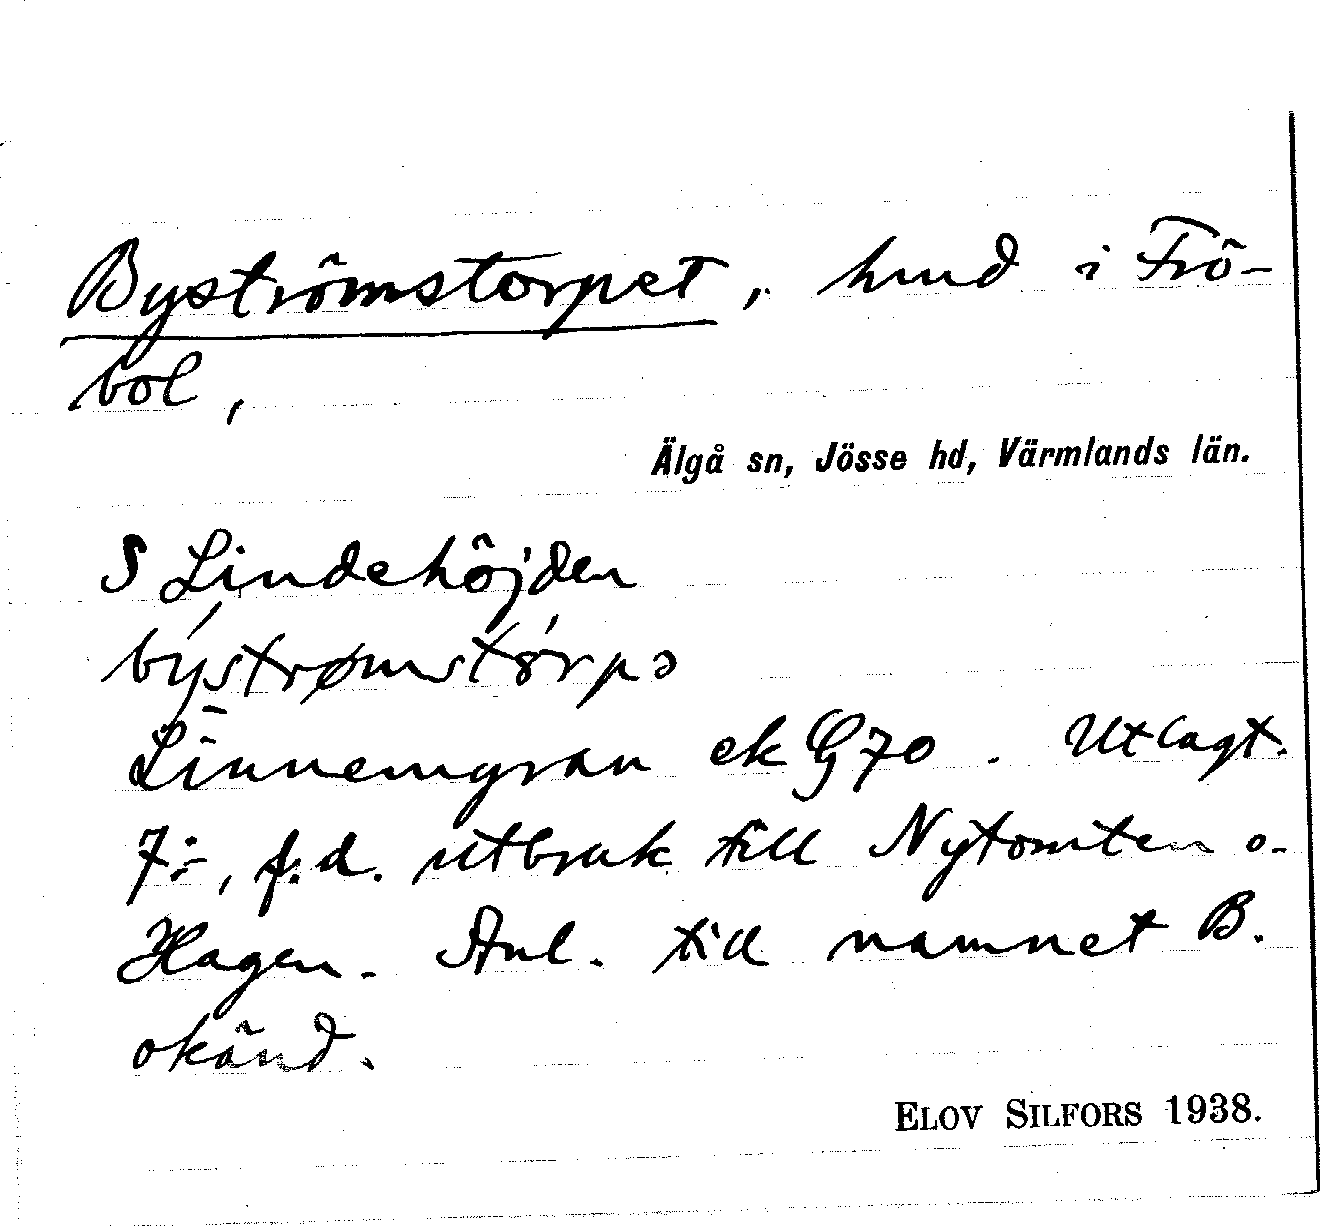 Byströmstorpet, hmd i Frö-
bol,
Älgå sn, Jösse hd, Värmlands län.
S Lindehöjden
býstrømstó̤rpə
Linnemyran ek G 70. Utlagt.
7:-, f.d. utbruk till Nytomten o.
Hagen. Anl. till namnet B.
okänd.
ELOV SILFORS 1938.